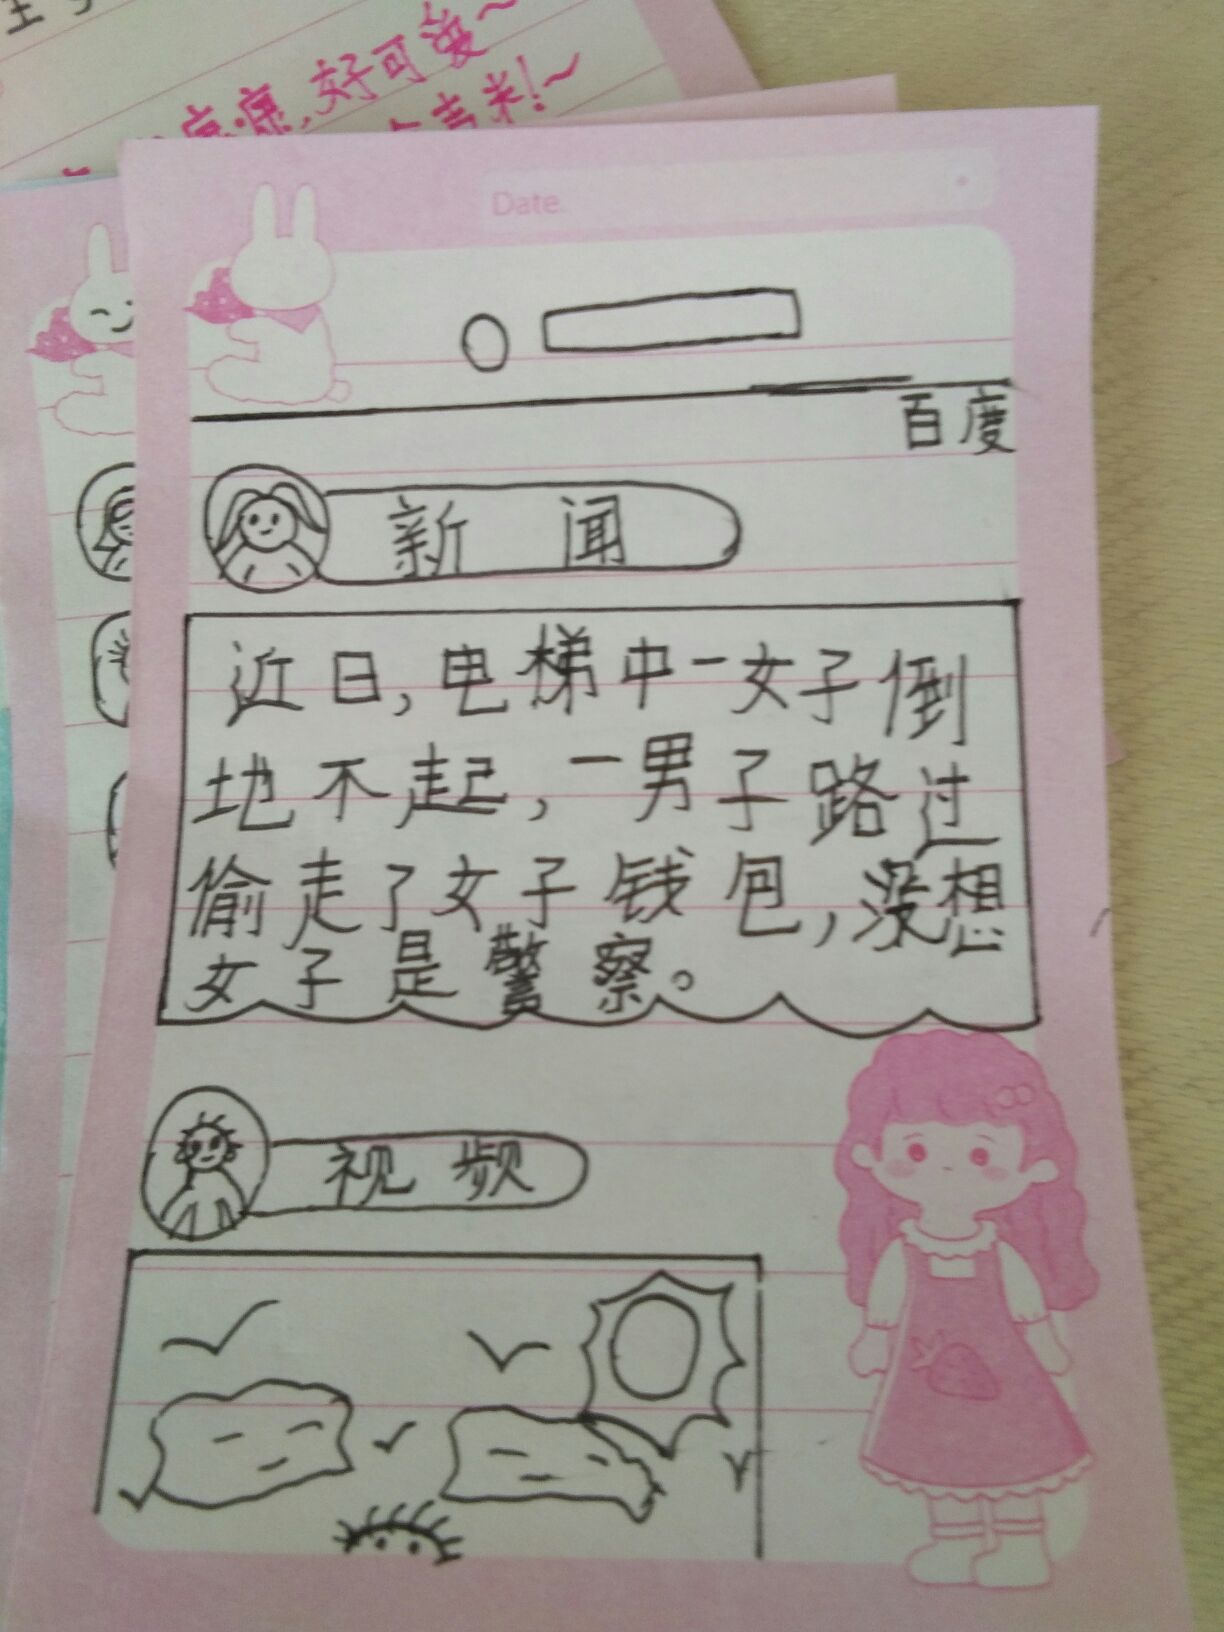 好可爱~
Date.
百度
新 闻
近日,电梯中一女子倒
地不起,一男子路过
偷走了女子钱包,没想
女子是警察。
视 频